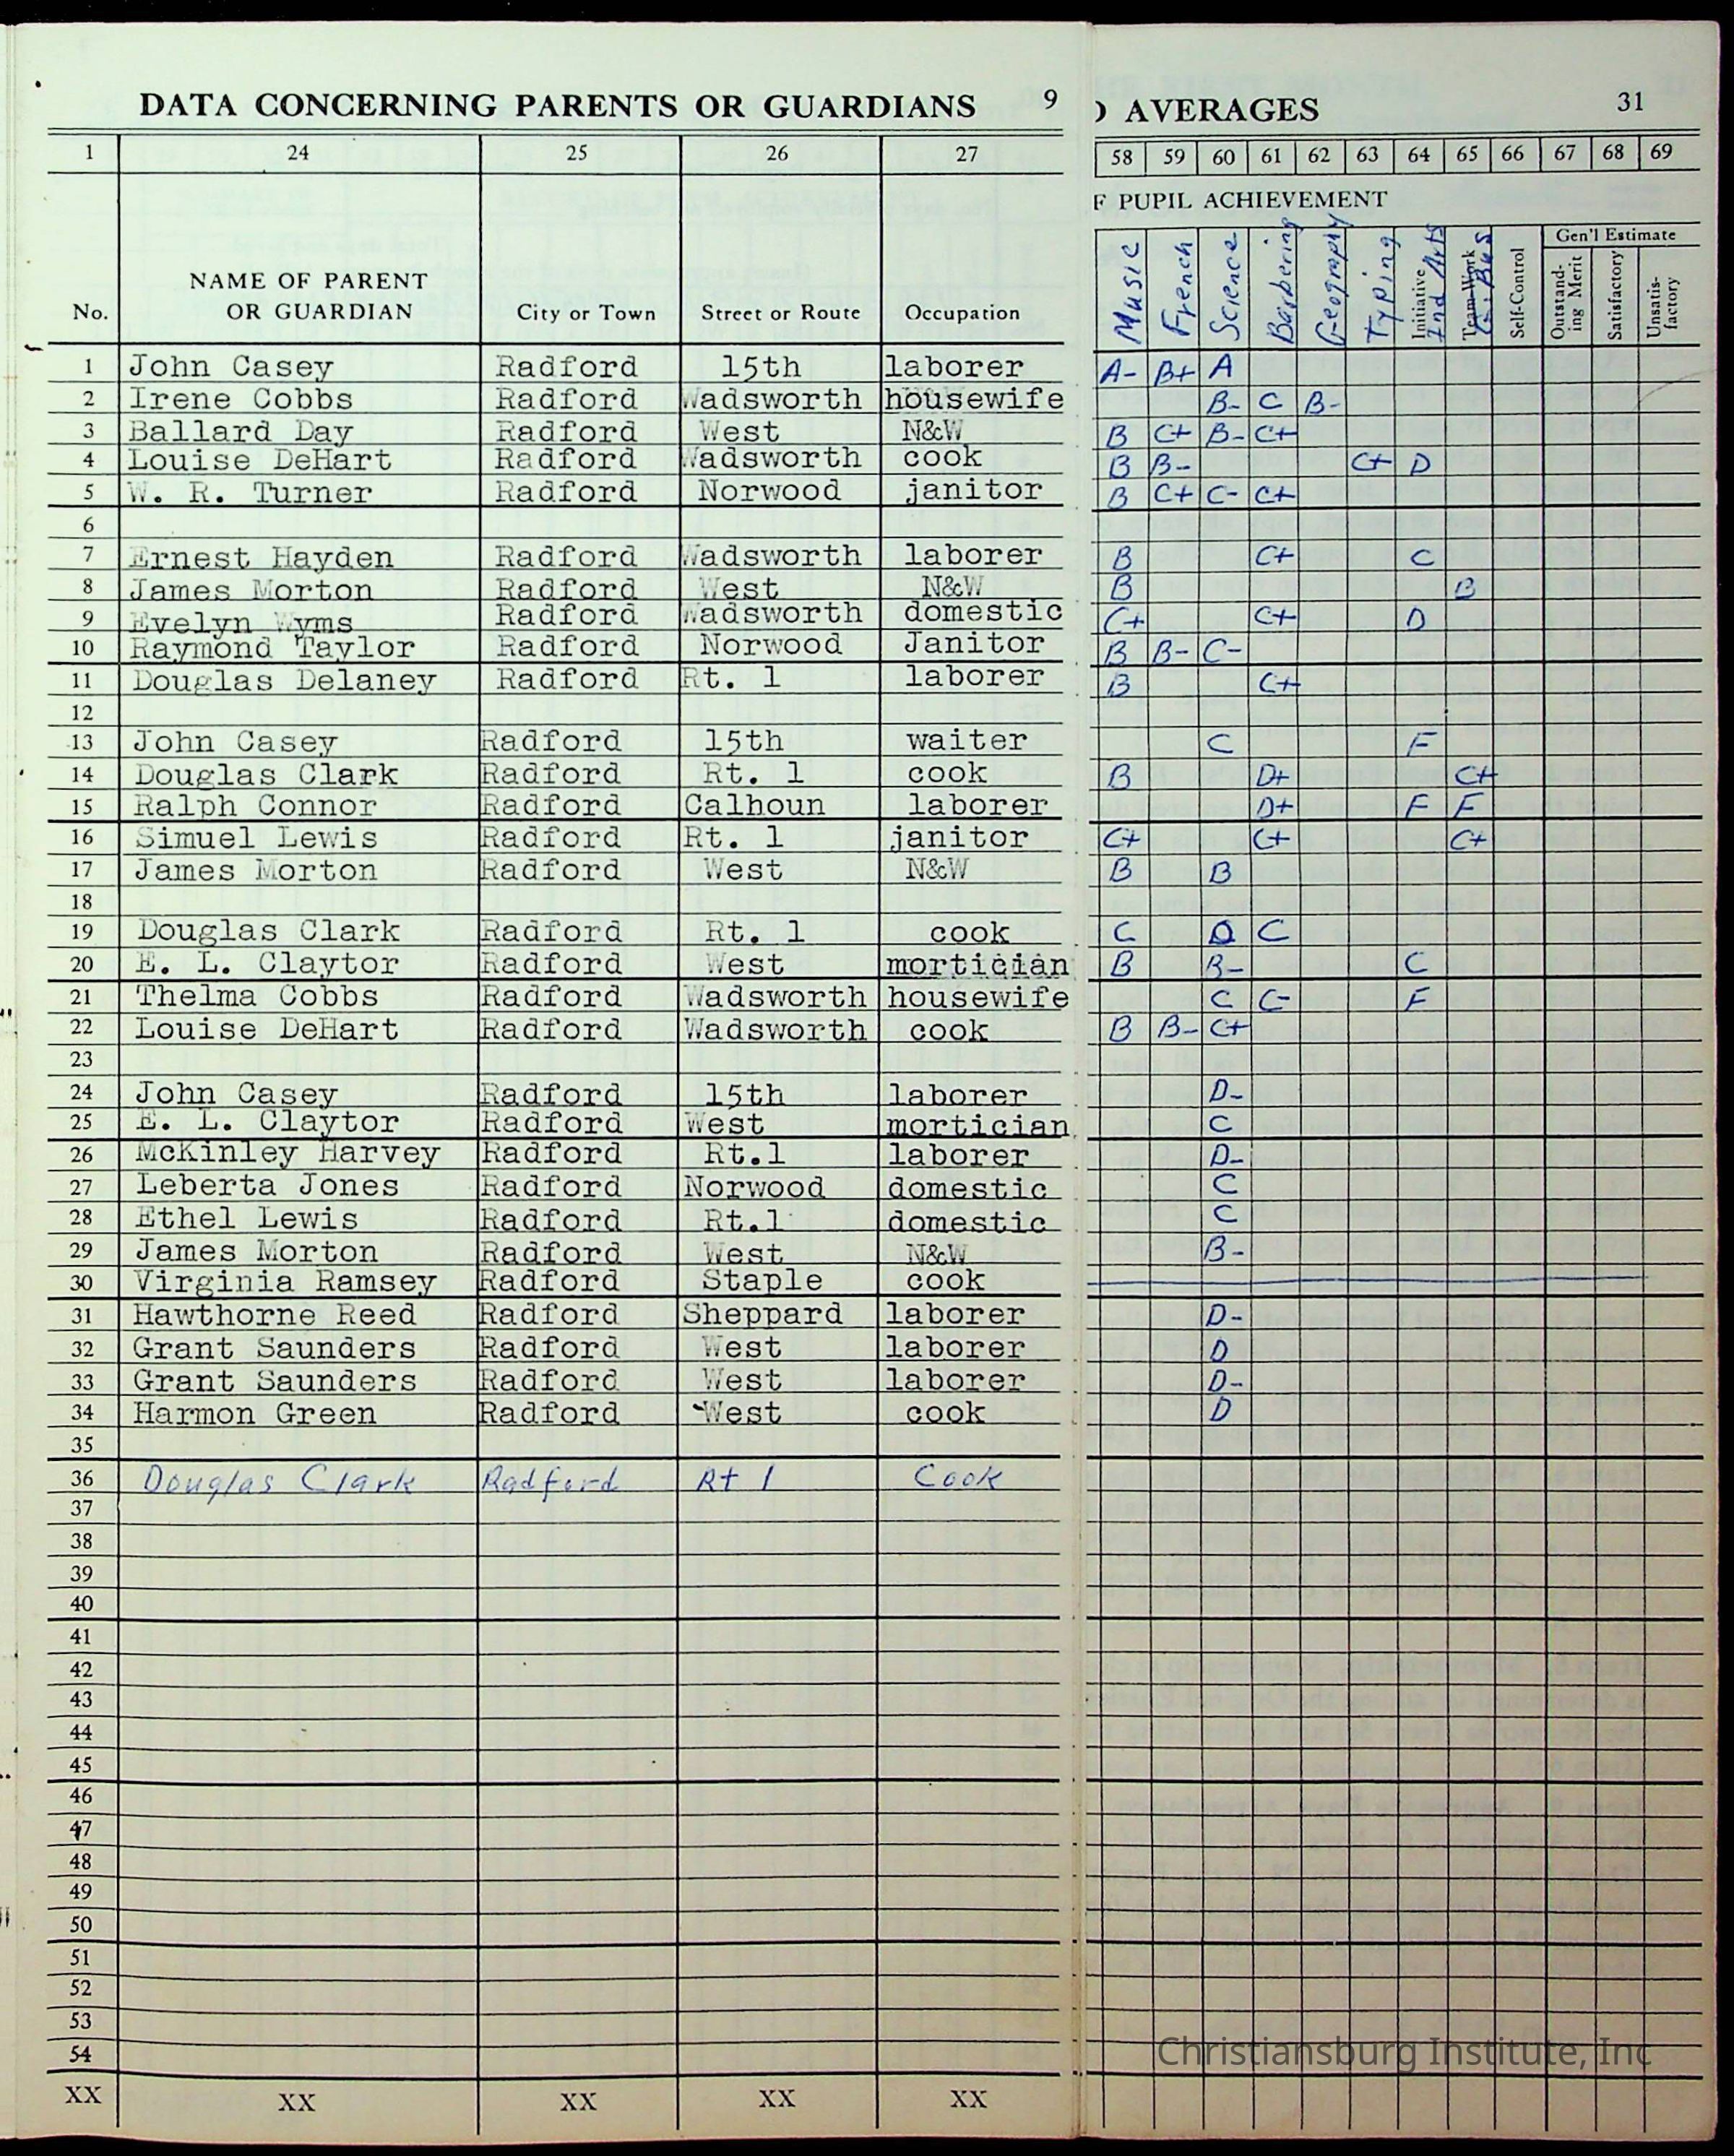 DATA CONCERNING PARENTS OR GUARDIANS 9 ) AVERAGES 31
1 24 25 26 27 58 59 60 61 62 63 64 65 66 67 68 69
F PUPIL ACHIEVEMENT
No. NAME OF PARENT OR GUARDIAN City or Town Street or Route Occupation Music French Science Barbering Geography Typing Initiative Ind Arts Team-Work Self-Control Gen'l Estimate Outstand-ing Merit Satisfactory Unsatis-factory
1 John Casey Radford 15th laborer A- B+ A
2 Irene Cobbs Radford Wadsworth housewife B- C B-
3 Ballard Day Radford West N&W B C+ B- C+
4 Louise DeHart Radford Wadsworth cook B B- C+ D
5 W. R. Turner Radford Norwood janitor B C+ C- C+
6
7 Ernest Hayden Radford Wadsworth laborer B C+ C
8 James Morton Radford West N&W B B
9 Evelyn Wyms Radford Wadsworth domestic C+ C+ D
10 Raymond Taylor Radford Norwood Janitor B B- C-
11 Douglas Delaney Radford Rt. 1 laborer B C+
12
13 John Casey Radford 15th waiter C F
14 Douglas Clark Radford Rt. 1 cook B D+ C+
15 Ralph Connor Radford Calhoun laborer D+ F F
16 Simuel Lewis Radford Rt. 1 janitor C+ C+ C+
17 James Morton Radford West N&W B B
18
19 Douglas Clark Radford Rt. 1 cook C D C
20 E. L. Claytor Radford West mortician B B- C
21 Thelma Cobbs Radford Wadsworth housewife C C- F
22 Louise DeHart Radford Wadsworth cook B B- C+
23
24 John Casey Radford 15th laborer D-
25 E. L. Claytor Radford West mortician C
26 McKinley Harvey Radford Rt.1 laborer D-
27 Leberta Jones Radford Norwood domestic C
28 Ethel Lewis Radford Rt.1 domestic C
29 James Morton Radford West N&W B-
30 Virginia Ramsey Radford Staple cook
31 Hawthorne Reed Radford Sheppard laborer D-
32 Grant Saunders Radford West laborer D
33 Grant Saunders Radford West laborer D-
34 Harmon Green Radford West cook D
35
36 Douglas Clark Radford Rt 1 Cook
37
38
39
40
41
42
43
44
45
46
47
48
49
50
51
52
53
54
Christiansburg Institute, Inc
XX XX XX XX XX